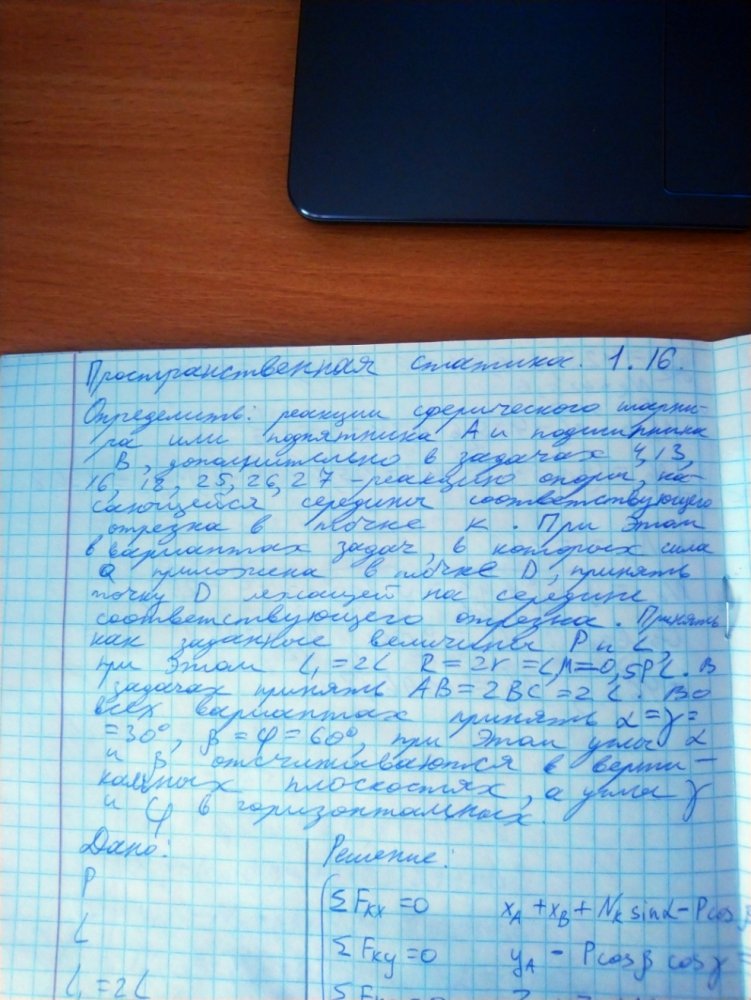 Пространственная статика. 1.16.
Определить: реакции сферического шарни-
ра или подпятника A и подшипника
B, дополнительно в задачах 4, 13,
16, 18, 25, 26, 27 - реакцию опоры, ка-
сающейся середины соответствующего
отрезка в точке K. При этом
в вариантах задач, в которых сила
Q приложена в точке D, принять
точку D лежащей на середине
соответствующего отрезка. Принять
как заданные величины P и L,
при этом L₁ = 2L R = 2r = L, M = 0,5PL. В
задачах принять AB = 2BC = 2L. Во
всех вариантах принять α = γ =
= 30°, β = φ = 60°, при этом углы α
и β отсчитываются в верти-
кальных плоскостях, а углы γ
и φ в горизонтальных.
Дано: Решение:
P
ΣFkx = 0 xA + xB + NK sinα - P cos
L
ΣFky = 0 yA - P cosβ cosγ
L₁ = 2L